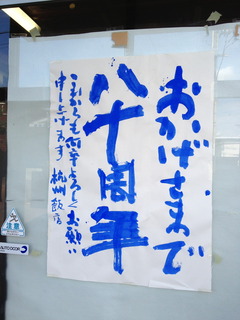 おかげさまで
八十周年
これからも何卒よろしくお願い
申し上げます 杭州飯店
注意
AUTO DOOR